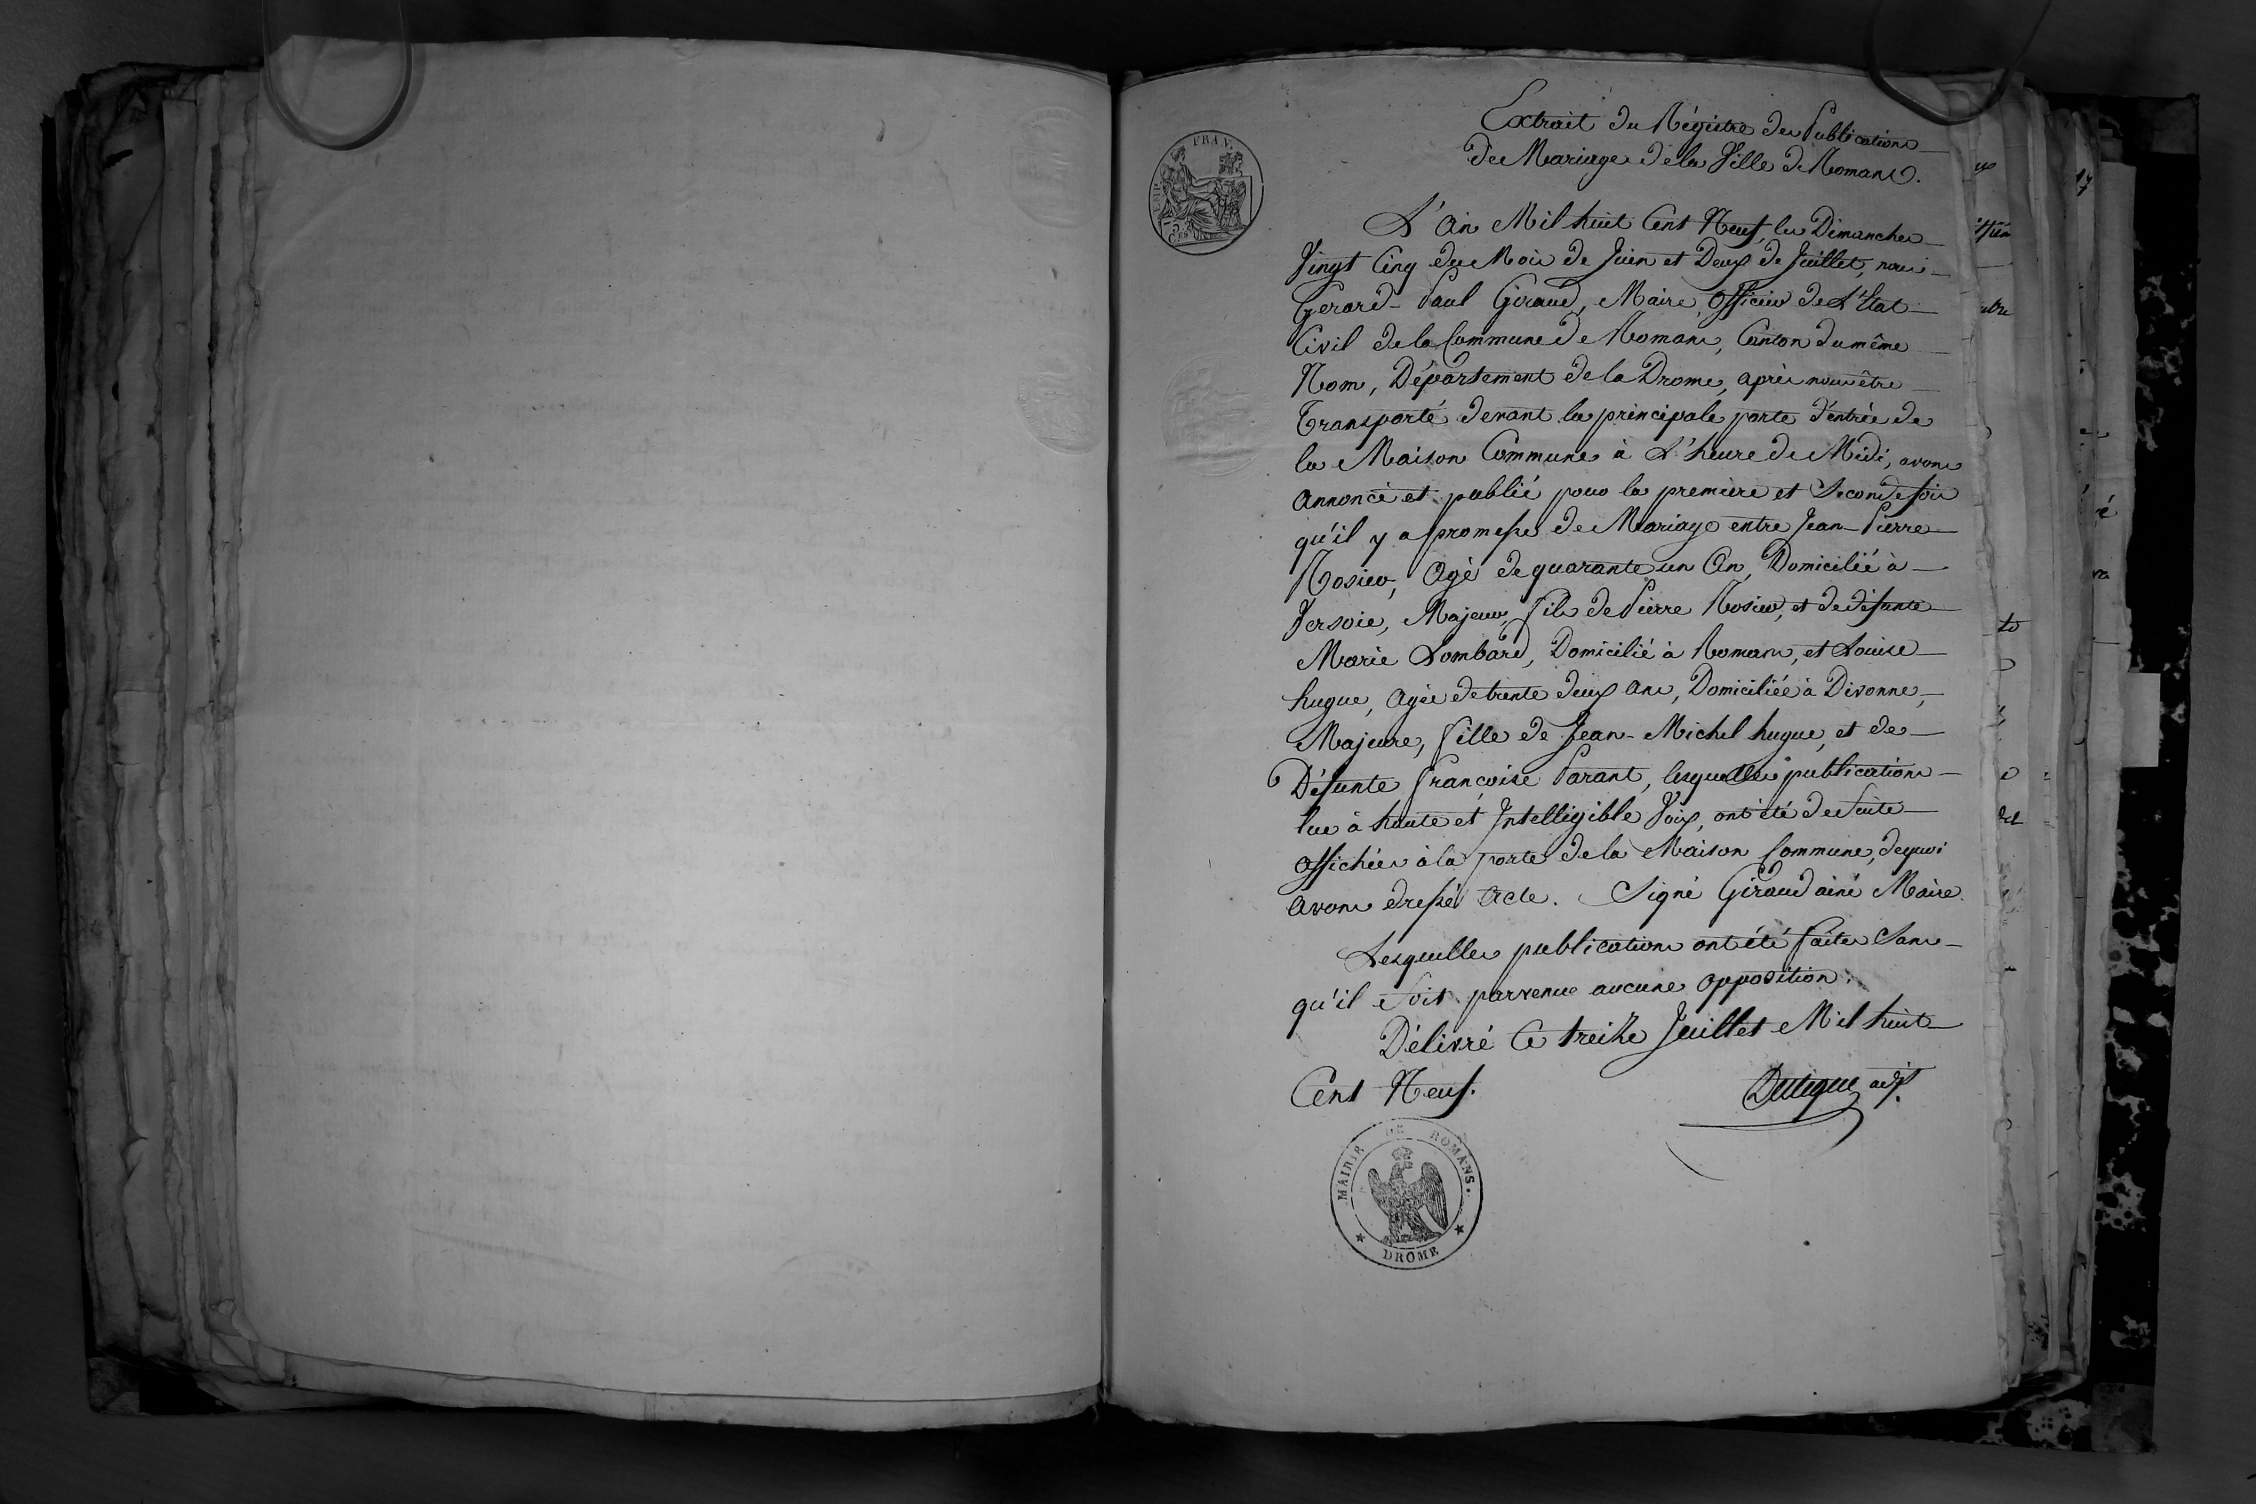 Extrait du Régistre des Publications
de Mariage de la Ville de Romans.
L'an Mil huit Cent Neuf, les Dimanches
Vingt Cinq du Mois de Juin et Deux de Juillet, nous
Gerard-Paul Giraud, Maire, officier de L'Etat
Civil de la Commune de Romans, Canton du même
Nom, Département de la Drome, après nous être
Transporté devant la principale porte d'entrée de
la Maison Commune à L'heure de Midi, avons
annoncé et publié pour la première et Seconde fois
qu'il y a promesse de Mariage entre Jean-Pierre
Rosier, Agé de quarante un An, Domicilié à
Versoie, Majeur, fils de Pierre Rosier, et de défunte
Marie Lombard, Domicilié à Romans, et Louise
hugue, Agée de trente deux ans, Domiciliée à Divonne,
Majeure, fille de Jean-Michel hugue, et de
Défunte françoise Parant, lesquelles publications
lue à haute et Intelligible Voix, ont été de Suite
affichées à la porte de la Maison Commune, de quoi
avons dressé Acte. Signé Giraud ainé Maire.
Lesquelles publications ont été faites Sans
qu'il Soit parvenue aucune opposition.
Délivré Ce treize Juillet Mil huit
Cent Neuf.
adj.
MAIRIE DE ROMANS.
DROME
EMP. FRAN.
75
CES